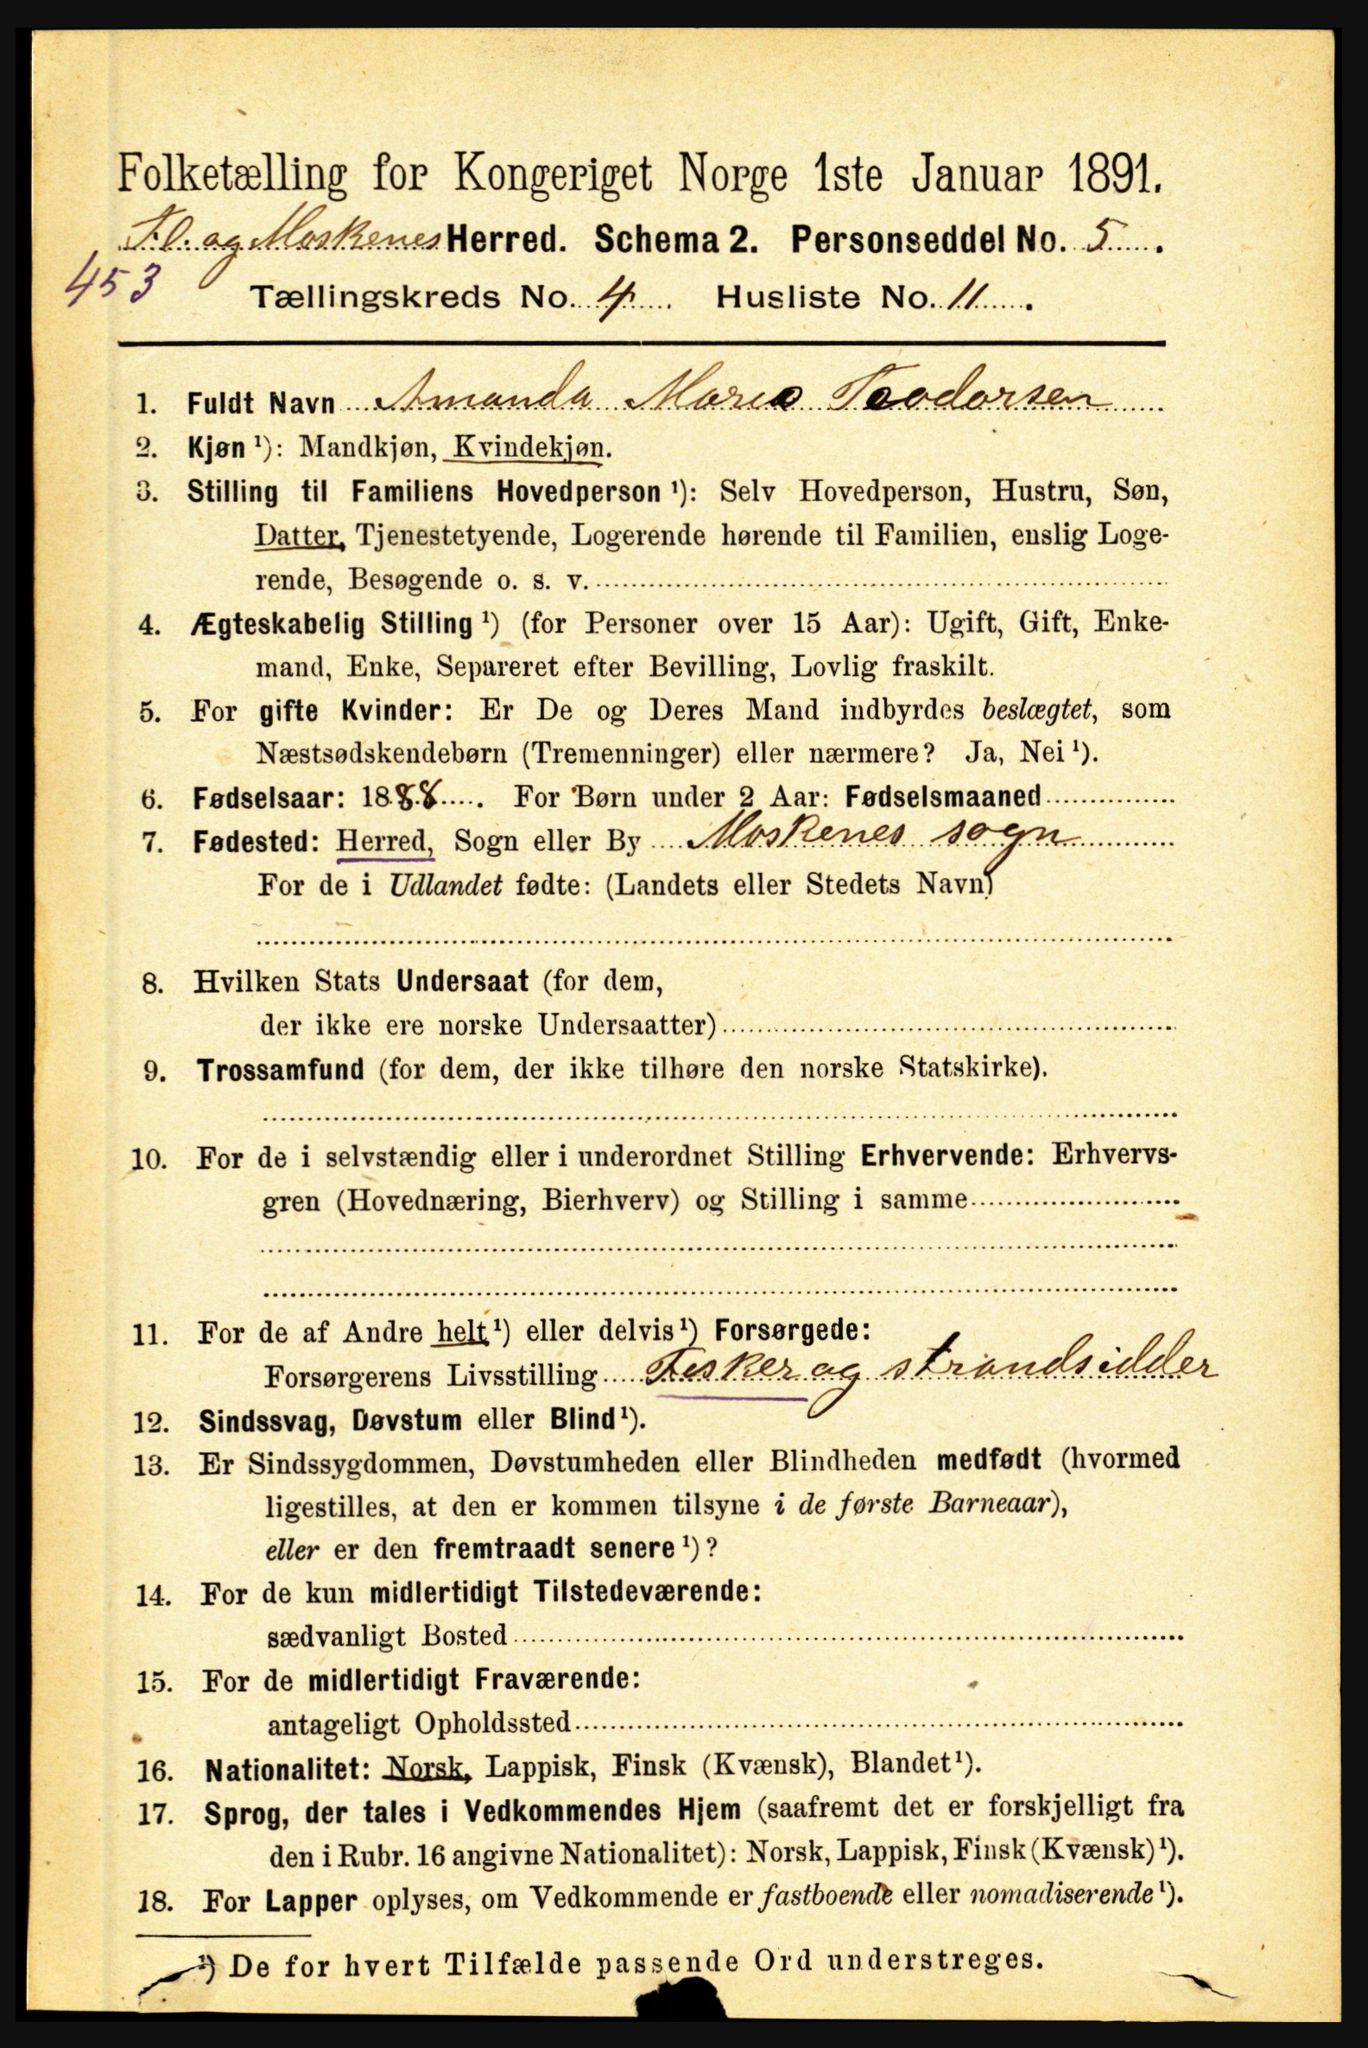 Folketælling for Kongeriget Norge 1ste Januar 1891.
Fl. og Moskenes Herred. Schema 2. Personseddel No. 5.
453
Tællingskreds No. 4. Husliste No. 11.
1. Fuldt Navn Amanda Marie Teodorsen
2. Kjøn ¹): Mandkjøn, Kvindekjøn.
3. Stilling til Familiens Hovedperson ¹): Selv Hovedperson, Hustru, Søn,
Datter, Tjenestetyende, Logerende hørende til Familien, enslig Loge-
rende, Besøgende o. s. v.
4. Ægteskabelig Stilling ¹) (for Personer over 15 Aar): Ugift, Gift, Enke-
mand, Enke, Separeret efter Bevilling, Lovlig fraskilt.
5. For gifte Kvinder: Er De og Deres Mand indbyrdes beslægtet, som
Næstsødskendebørn (Tremenninger) eller nærmere? Ja, Nei ¹).
6. Fødselsaar: 1888. For Børn under 2 Aar: Fødselsmaaned
7. Fødested: Herred, Sogn eller By Moskenes sogn
For de i Udlandet fødte: (Landets eller Stedets Navn)
8. Hvilken Stats Undersaat (for dem,
der ikke ere norske Undersaatter)
9. Trossamfund (for dem, der ikke tilhøre den norske Statskirke).
10. For de i selvstændig eller i underordnet Stilling Erhvervende: Erhvervs-
gren (Hovednæring, Bierhverv) og Stilling i samme
11. For de af Andre helt ¹) eller delvis ¹) Forsørgede:
Forsørgerens Livsstilling Fisker og strandsidder
12. Sindssvag, Døvstum eller Blind ¹).
13. Er Sindssygdommen, Døvstumheden eller Blindheden medfødt (hvormed
ligestilles, at den er kommen tilsyne i de første Barneaar),
eller er den fremtraadt senere ¹)?
14. For de kun midlertidigt Tilstedeværende:
sædvanligt Bosted
15. For de midlertidigt Fraværende:
antageligt Opholdssted
16. Nationalitet: Norsk, Lappisk, Finsk (Kvænsk), Blandet ¹).
17. Sprog, der tales i Vedkommendes Hjem (saafremt det er forskjelligt fra
den i Rubr. 16 angivne Nationalitet): Norsk, Lappisk, Finsk (Kvænsk) ¹).
18. For Lapper oplyses, om Vedkommende er fastboende eller nomadiserende ¹).
¹) De for hvert Tilfælde passende Ord understreges.